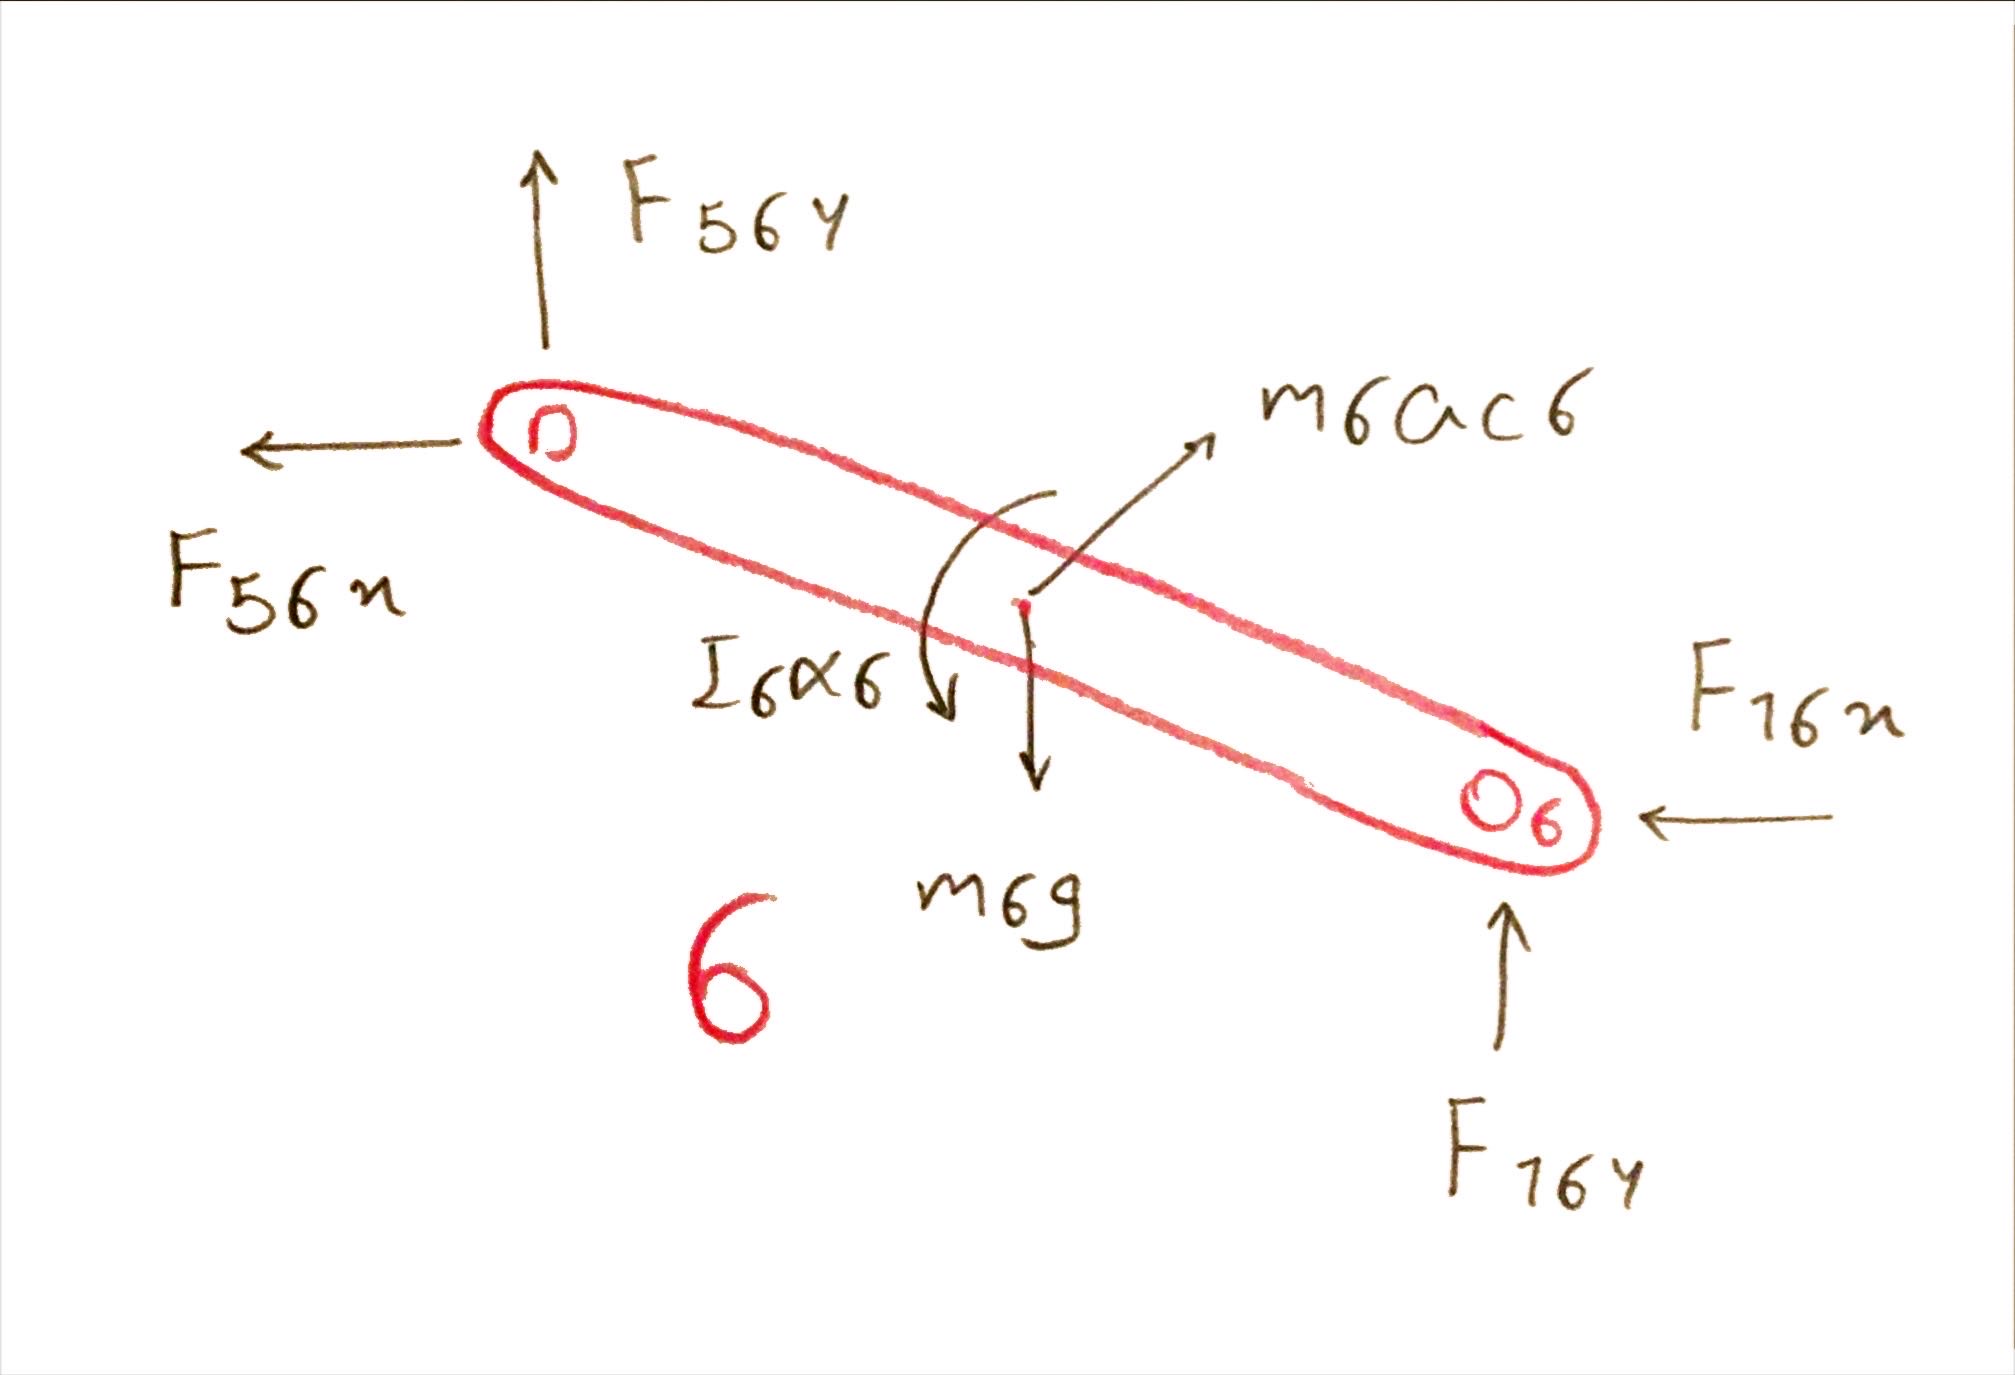 F56y
D
m6ac6
F56x
I6α6
F16x
O6
m6g
6
F16y